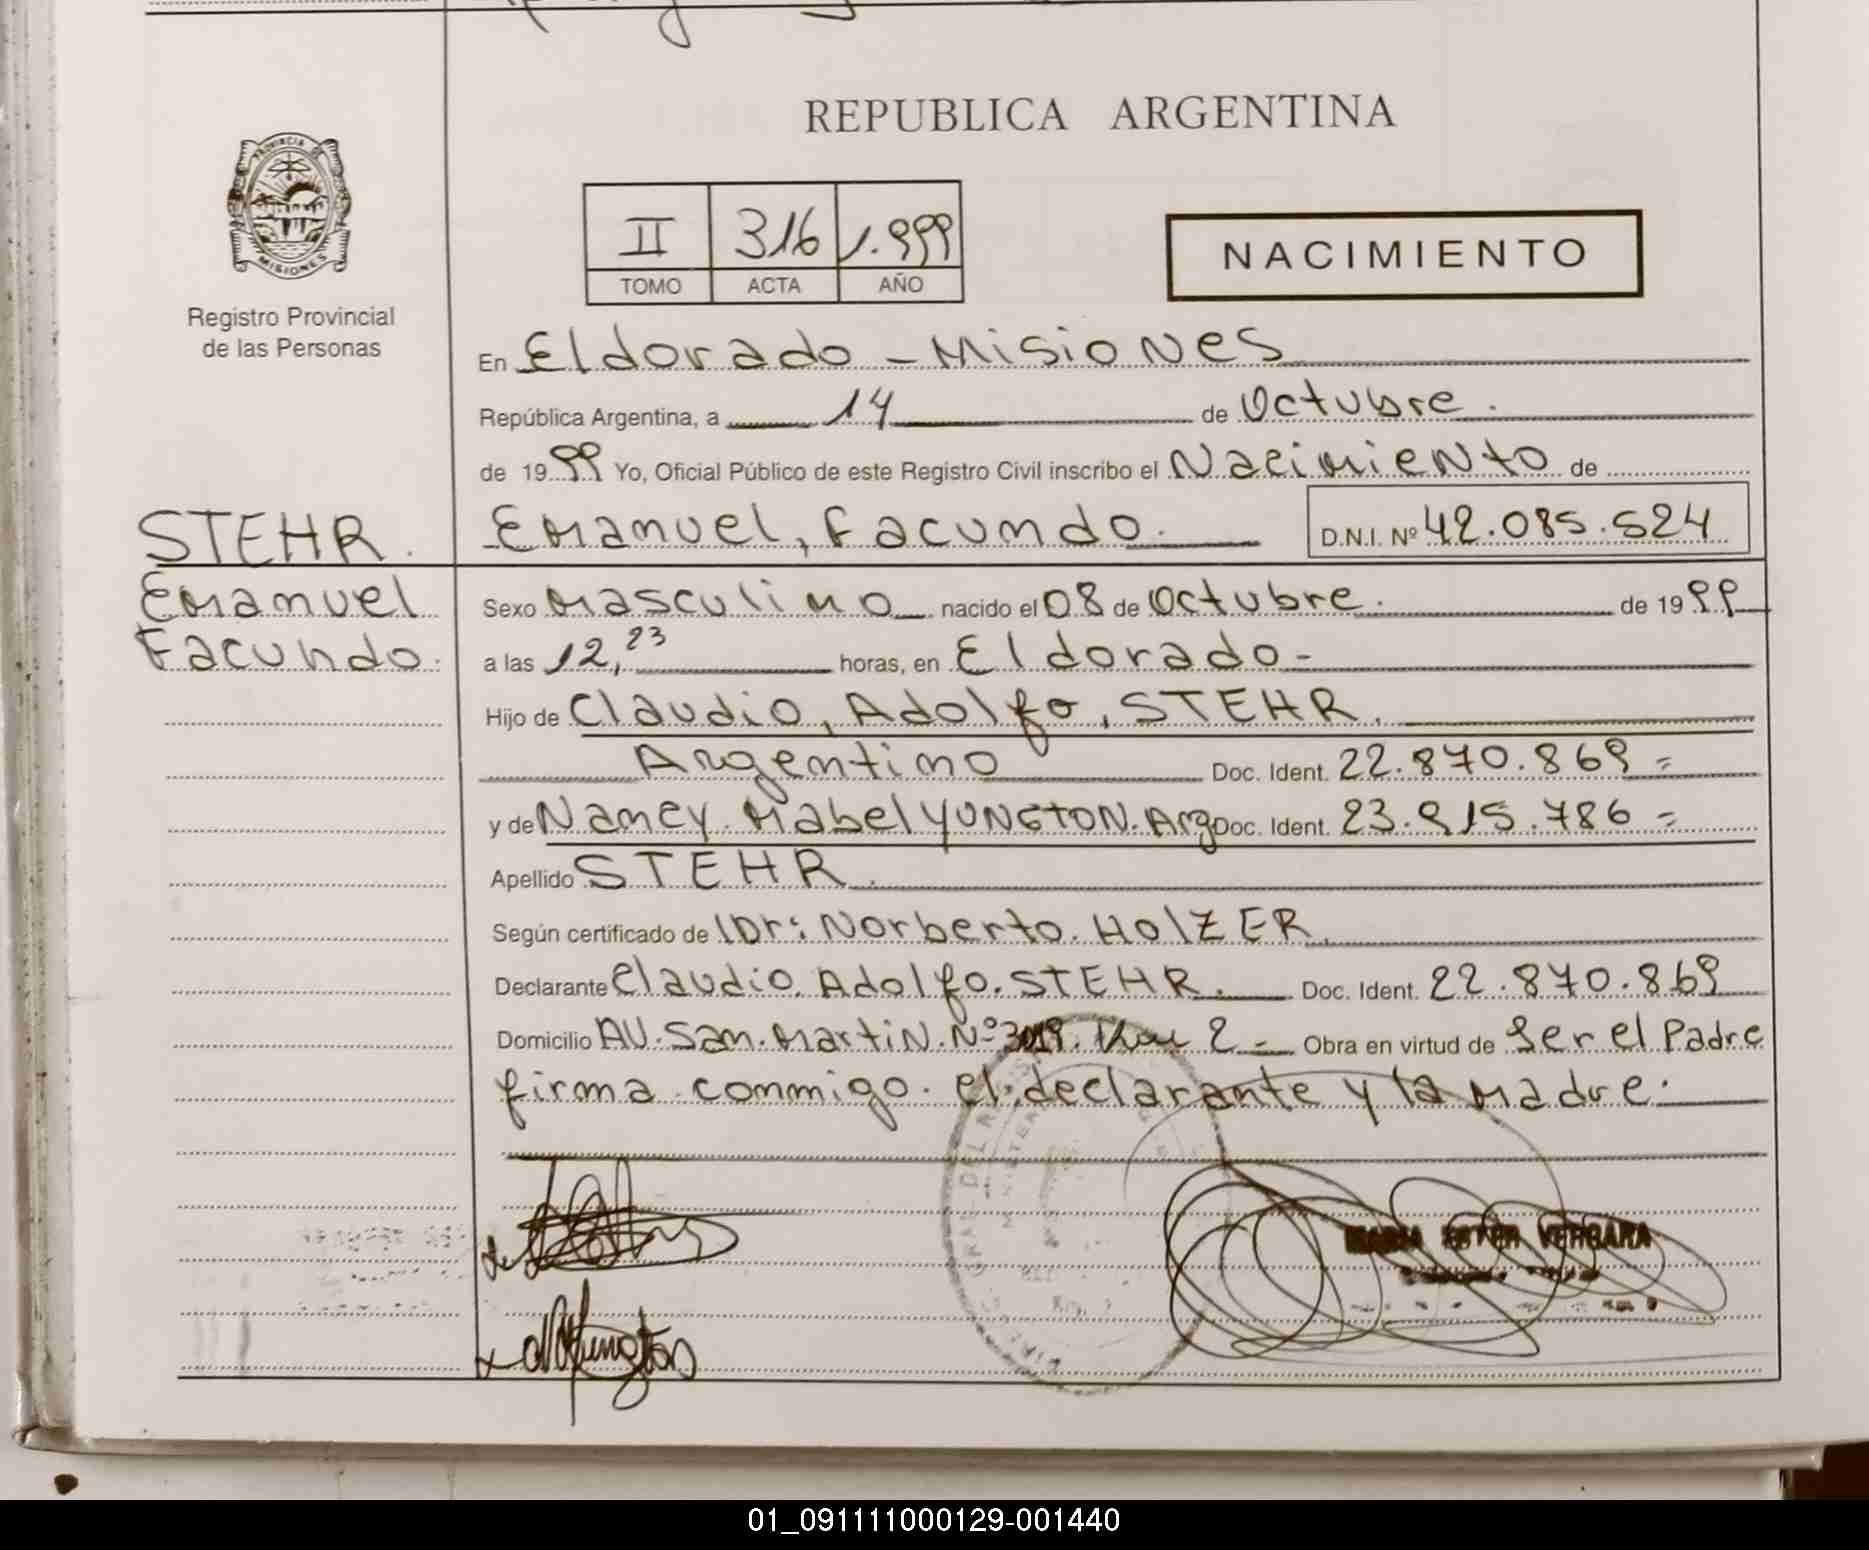 REPUBLICA ARGENTINA
PROVINCIA DE
MISIONES
Registro Provincial
de las Personas
II 316 1.999
TOMO ACTA AÑO
NACIMIENTO
En Eldorado - Misiones
República Argentina, a 14 de Octubre.
de 1999 Yo, Oficial Público de este Registro Civil inscribo el Nacimiento de
STEHR. Emanuel, Facundo. D.N.I. Nº 42.085.524
Emanuel
Facundo.
Sexo Masculino nacido el 08 de Octubre. de 1999
a las 12,23 horas, en Eldorado-
Hijo de Claudio, Adolfo, STEHR.
Argentino Doc. Ident. 22.870.869=
y de Nancy. Mabel YUNGTON. Arg Doc. Ident. 23.915.786=
Apellido STEHR.
Según certificado de Dr: Norberto. HOlZER.
Declarante Claudio. Adolfo. STEHR. Doc. Ident. 22.870.869
Domicilio AV. San. Martin. Nº 2 - Obra en virtud de Ser el Padre
firma conmigo. el declarante y la Madre.
MARIA ESTER VERGARA
01_091111000129-001440